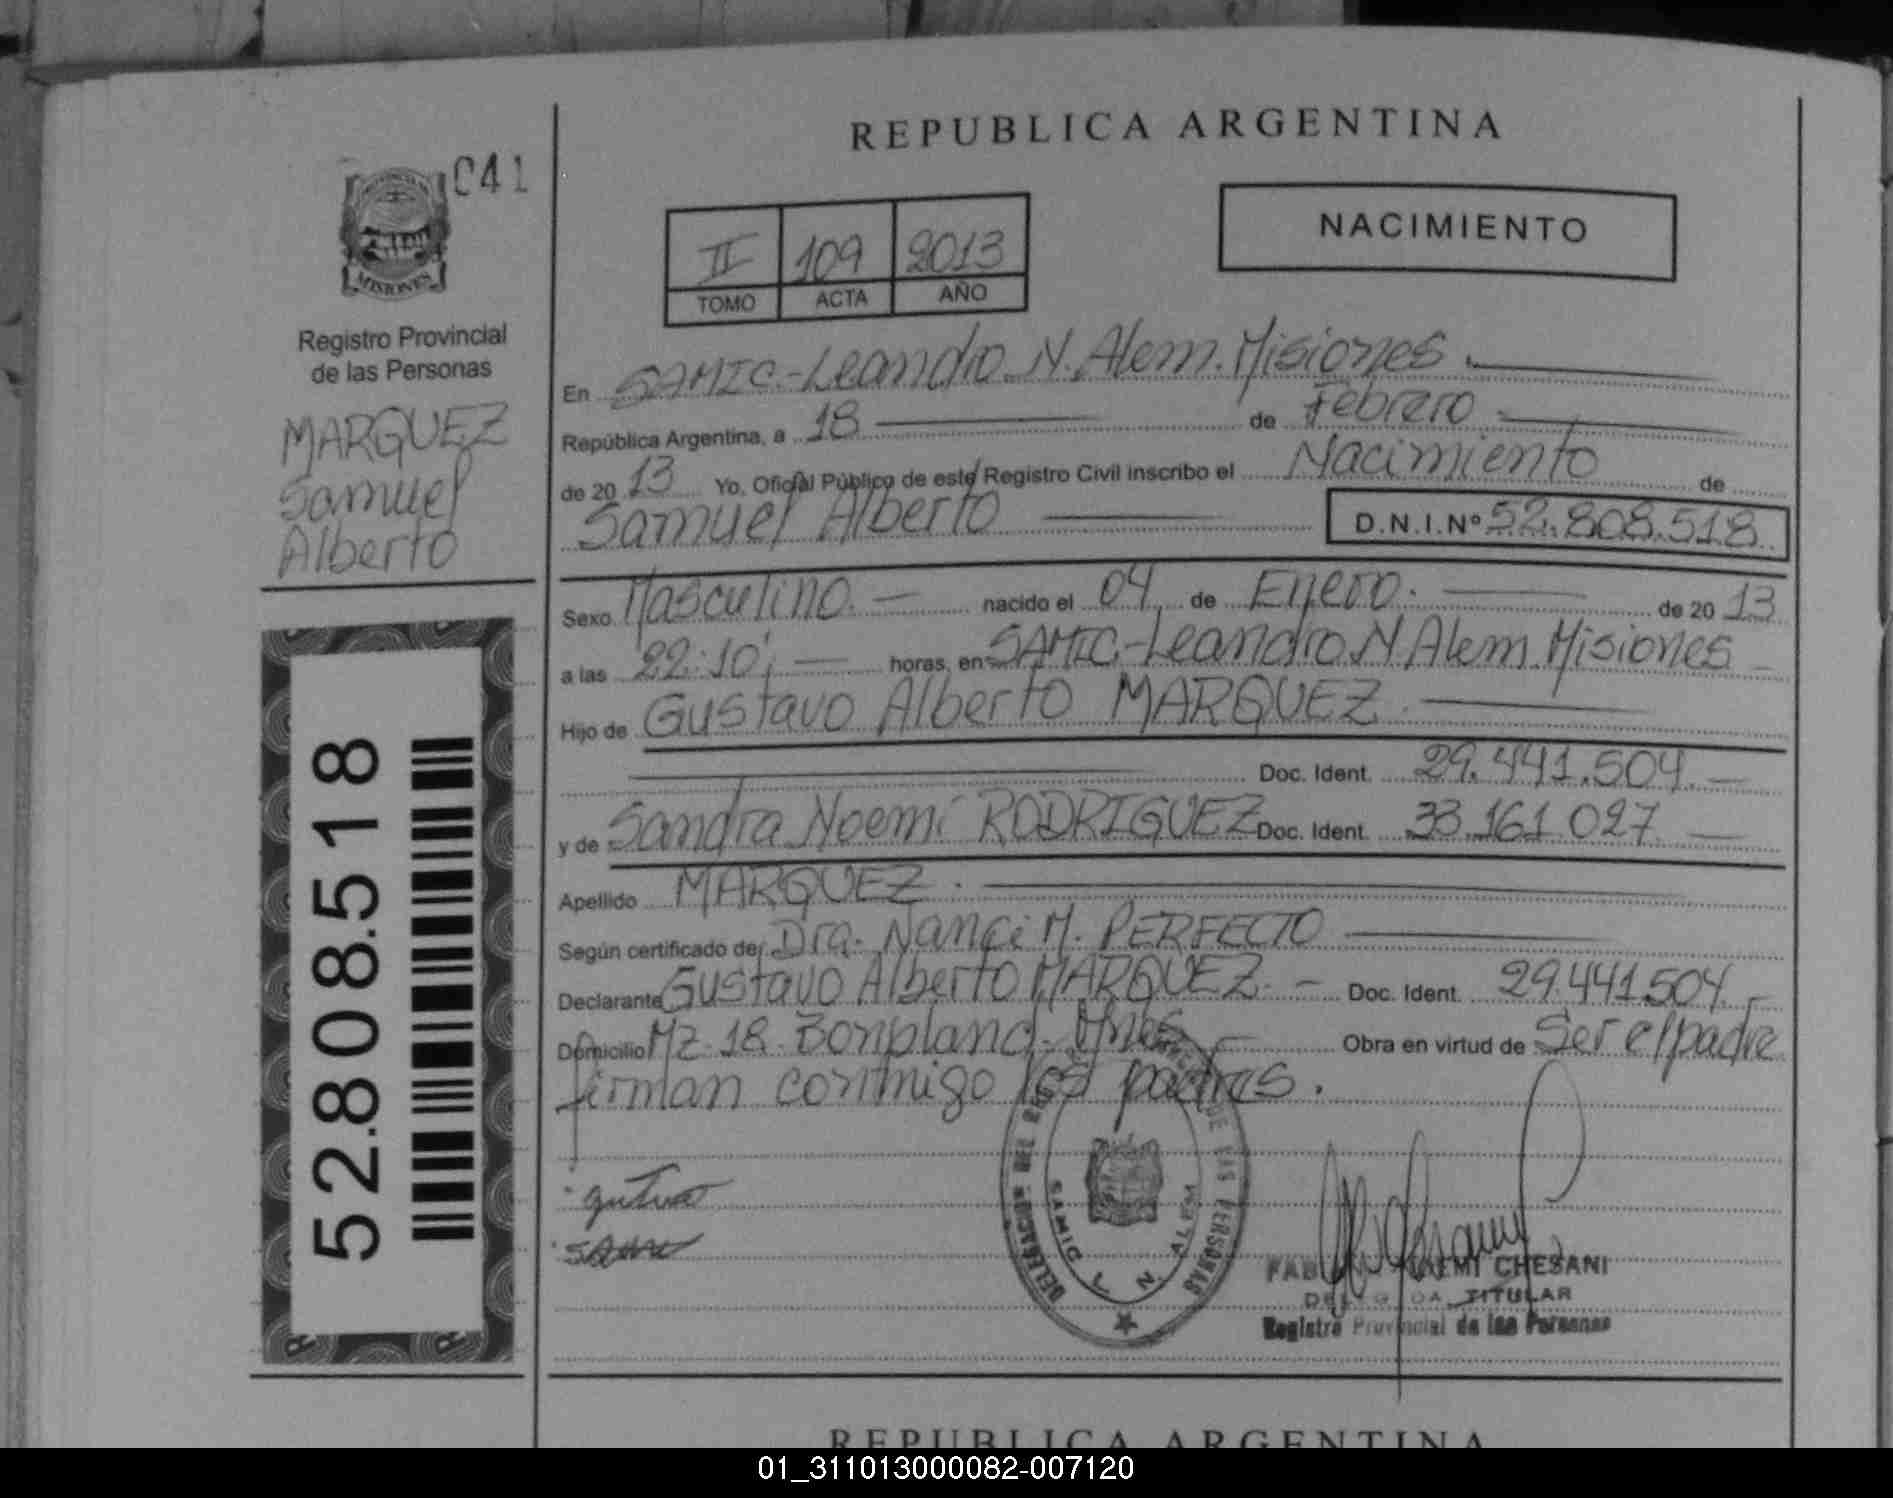 REPUBLICA ARGENTINA
041
MISIONES
Registro Provincial
de las Personas
MARQUEZ
Samuel
Alberto
52.808.518
II 109 2013
TOMO ACTA AÑO
NACIMIENTO
En SAMIC.-Leandro N. Alem. Misiones.
República Argentina, a 18 de Febrero
de 20 13 Yo, Oficial Público de este Registro Civil inscribo el Nacimiento de
Samuel Alberto D.N.I.Nº 52.808.518
Sexo Masculino. nacido el 04 de Enero. de 20 13
a las 22:10' horas, en SAMIC-Leandro N. Alem. Misiones
Hijo de Gustavo Alberto MARQUEZ.
Doc. Ident. 29.441.504.
y de Sandra Noemí RODRIGUEZ Doc. Ident. 33.161.027
Apellido MARQUEZ.
Según certificado de Dra. Nanci M. PERFECTO
Declarante Gustavo Alberto MARQUEZ. Doc. Ident. 29.441.504.
Domicilio Mz. 18. Bonpland. Mnes Obra en virtud de Ser el padre
firman conmigo los padres.
DE LAS PERSONAS
SAMIC L. N. ALEM
CHESANI
TITULAR
Registro Provincial de las Personas
REPUBLICA ARGENTINA
01_311013000082-007120